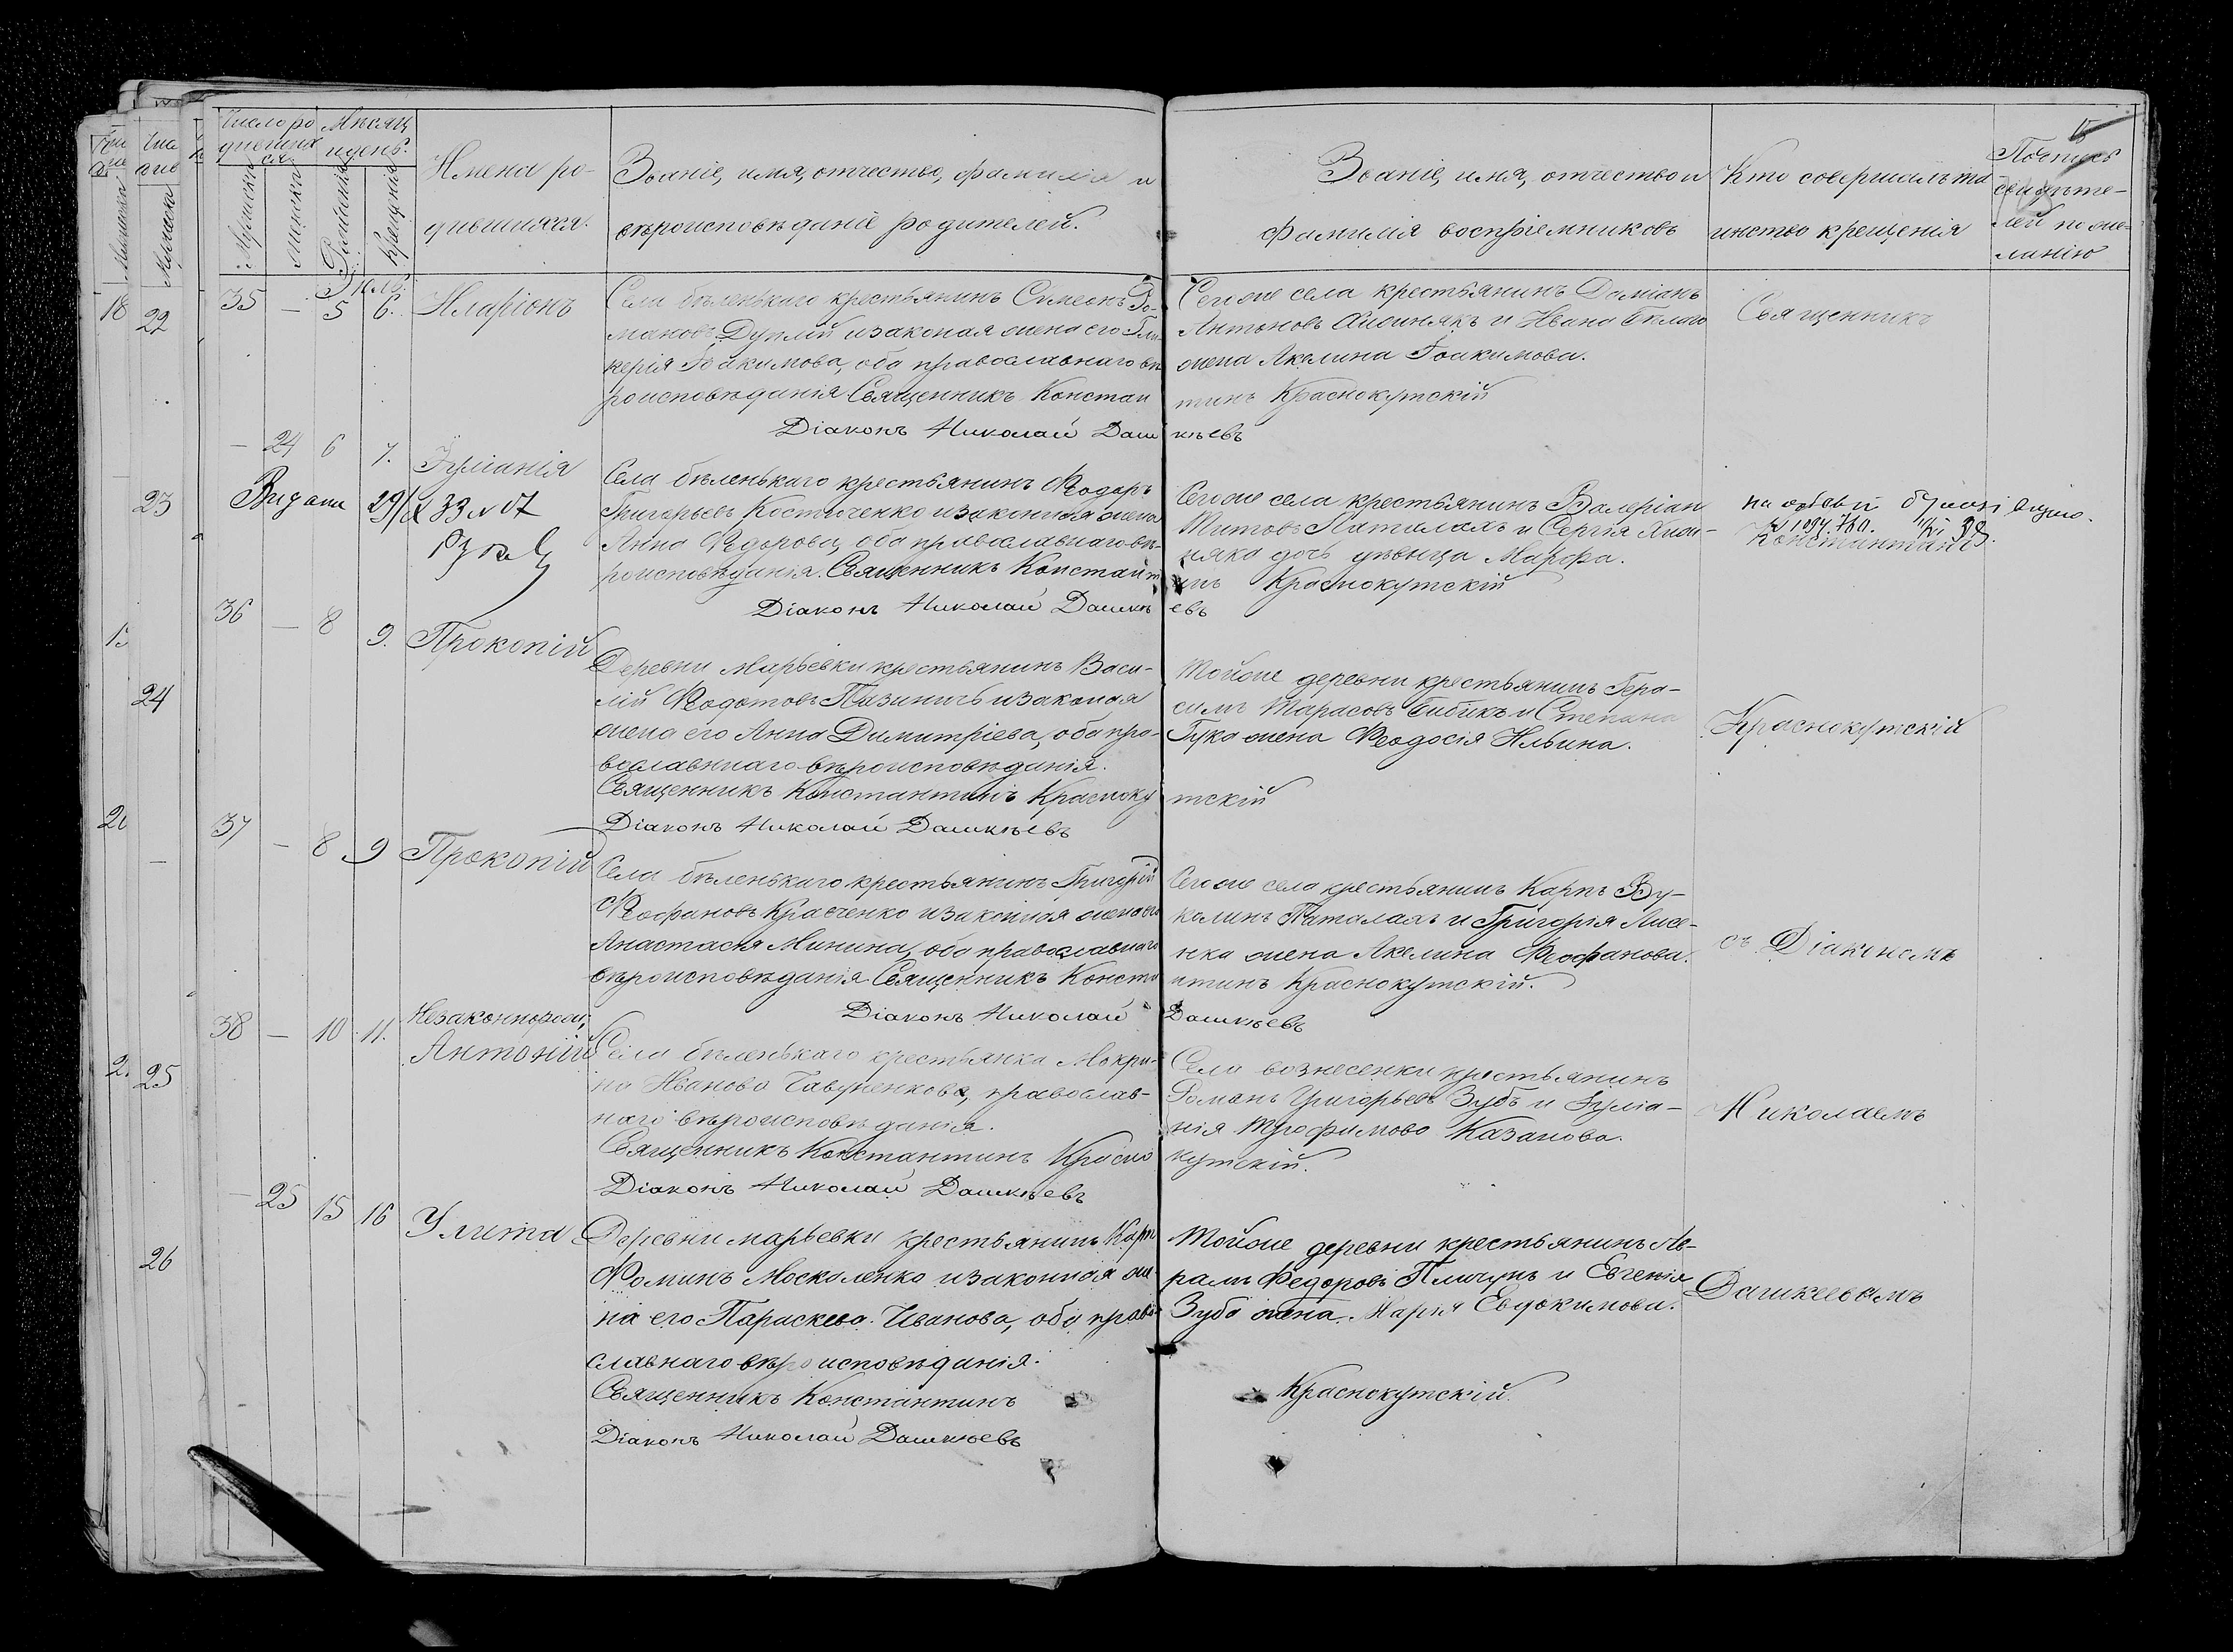 Число родившихся
Мѣсяц и день.
Мужска
Женска
Рожденія
Крещенія
Имена ро-
дившихся.
Званіе, имя, отчество, фамилія и
вѣроисповѣданіе родителей.
Званіе, имя, отчество и
фамилія воспріемниковъ
Кто совершалъ та
инство крещенія
Подпись
свидѣте-
лей по же-
ланію
35 — 5 6. Иларіонъ
Села бѣленькаго крестьянинъ Симеонъ Ро-
мановъ Дуплій и законая жена его Гли-
керія Іоакимова, оба православнаго вѣ
роисповѣданія Священникъ Констан
Діаконъ Николай Даш
Сегоже села крестьянинъ Доміанъ
Антоновъ и Ивана Бѣлаго
жена Акелина Іоакимова.
тинъ Краснокутскій
кѣевъ
Священникъ
— 24 6 7. Іуліанія
Села бѣленькаго крестьянинъ Ѳеодоръ
Григорьевъ Костюченко и законная жена
Анна Ѳедорова, оба православнаго вѣ-
роисповѣданія. Священникъ Констант
Діаконъ Николай Дашкѣ
Сегоже села крестьянинъ Валеріан
Титовъ Паталахъ и Сергія
няка дочь дѣвица Марѳа.
инъ Краснокутскій
евъ
Константинъ
36 — 8 9. Прокопій
Деревни Марьевки крестьянинъ Васи-
лій Ѳеодотовъ и законая
жена его Анна Димитріева, оба пра-
вославнаго вѣроисповѣданія.
Священникъ Константинъ Красноку
Діаконъ Николай Дашкѣевъ
Тойже деревни крестьянинъ Гера-
симъ Тарасовъ Бибикъ и Степана
Гука жена Ѳеодосія Ильина.
тскій
Краснокутскій
37 — 8 9 Прокопій
Села бѣленькаго крестьянинъ Григорій
Ѳеофановъ Кравченко и законная жена его
Анастасія Минина, оба православнаго
вѣроисповѣданія Священникъ Конста
Діаконъ Николай
Сегоже села крестьянинъ Карпъ Ву-
колинъ Паталахъ и Григорія Лисе-
нка жена Акелина Ѳеофанова.
нтинъ Краснокутскій.
Дашкѣевъ
съ Діакономъ
38 — 10 11. Незаконнорож;
Антоній
Села бѣленькаго крестьянка Мокри-
на Иванова Гавриенкова, православ-
наго вѣроисповѣданія.
Священникъ Константинъ Красно
Діаконъ Николай Дашкѣевъ
Села вознесенки крестьянинъ
Романъ Григорьевъ Зубъ и Іуліа-
нія Трофимова Казанова.
кутскій.
Николаемъ
— 25 15 16 Улита
Деревни марьевки крестьянинъ Карп
Ѳоминъ Москаленко и законная же
на его Параскева Иванова, оба право
славнаго вѣроисповѣданія.
Священникъ Константинъ
Діаконъ Николай Дашкѣевъ
Тойже деревни крестьянинъ Ав-
рамъ Федоровъ и Евгенія
Зуба жена Марія Евдокимова.
Краснокутскій.
Дашкеевымъ
18
22
23
24
25
26